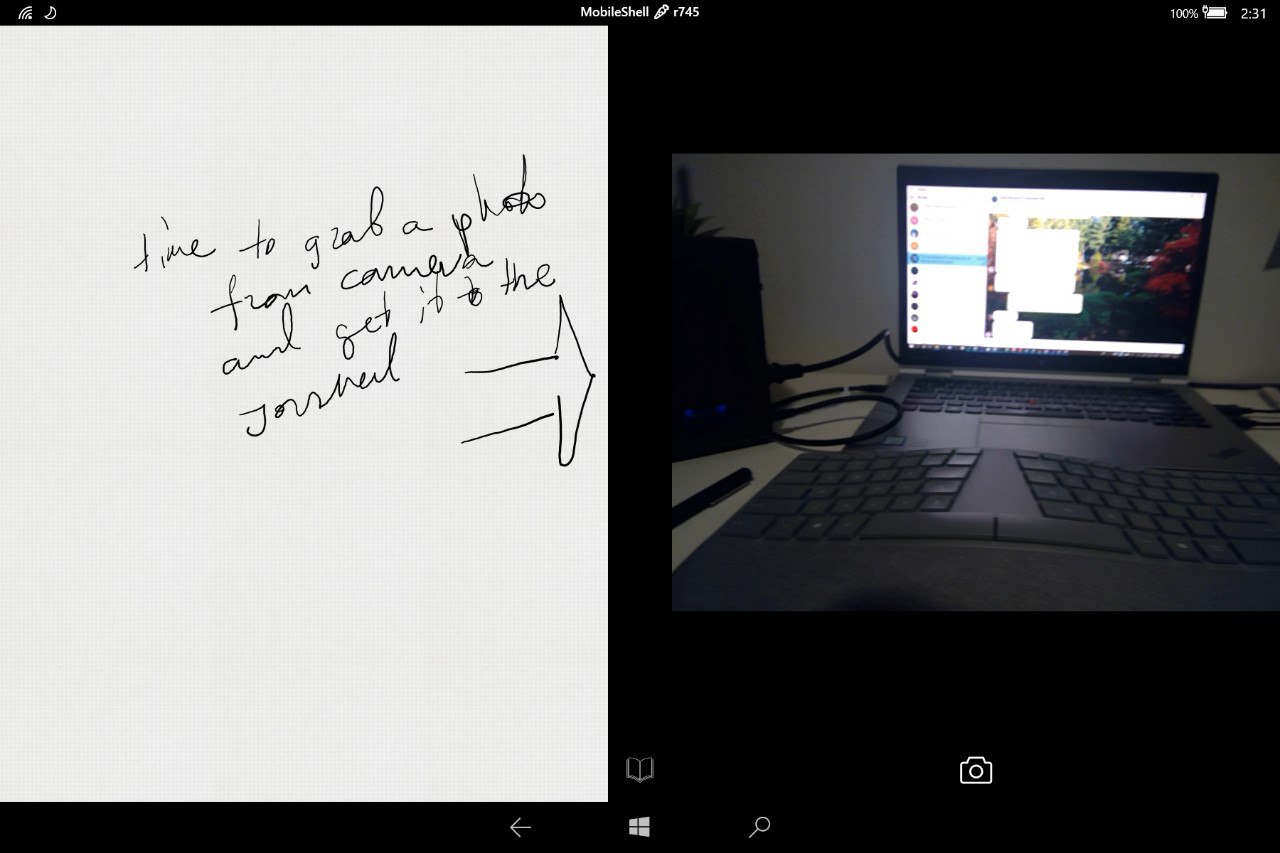 MobileShell r745
100% 2:31
time to grab a photo
from camera
and get it to the
journal